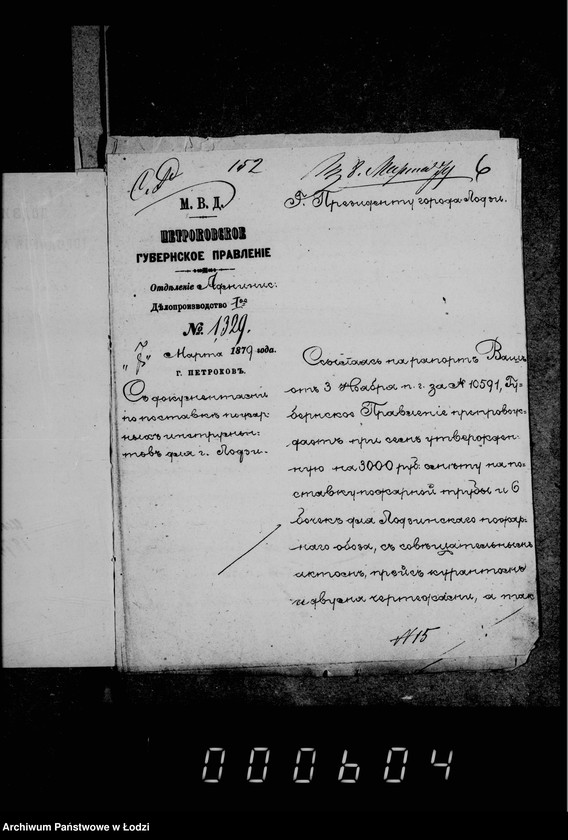 152
6
М. В. Д.
ПЕТРОКОВСКОЕ
ГУБЕРНСКОЕ ПРАВЛЕНІЕ
Отдѣленіе Админис:
Дѣлопроизводство I го
№ 1329.
Марта 1879 года.
Г. ПЕТРОКОВЪ.
Съ документами
по поставкѣ пожар-
ныхъ инструмен-
товъ для г. Лодзи.
Г. Президенту города Лодзи.
Ссылаясь на рапортъ Вашъ
отъ 3 Ноября п. г. за № 10591, Гу-
бернское Правленіе препровож-
даетъ при семъ утвержден-
ную на 3000 руб. смѣту на по-
ставку пожарной трубы и 6
бочекъ для Лодзинскаго пожар-
наго обоза, съ совѣщательнымъ
актомъ, прейсъ курантомъ
и двумя чертежами, а так
№ 15
000604
Archiwum Państwowe w Łodzi